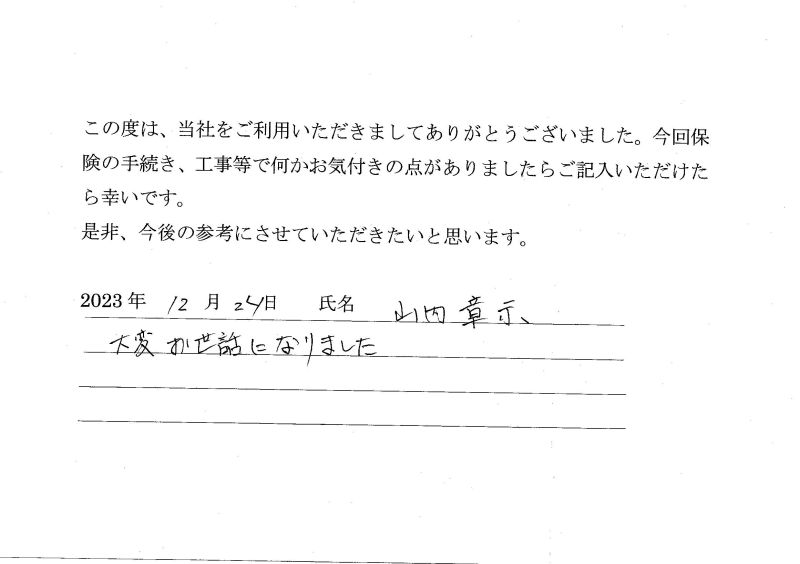 この度は、当社をご利用いただきましてありがとうございました。今回保
険の手続き、工事等で何かお気付きの点がありましたらご記入いただけた
ら幸いです。
是非、今後の参考にさせていただきたいと思います。
2023年 12月 24日 氏名 山内 章示、
大変お世話になりました